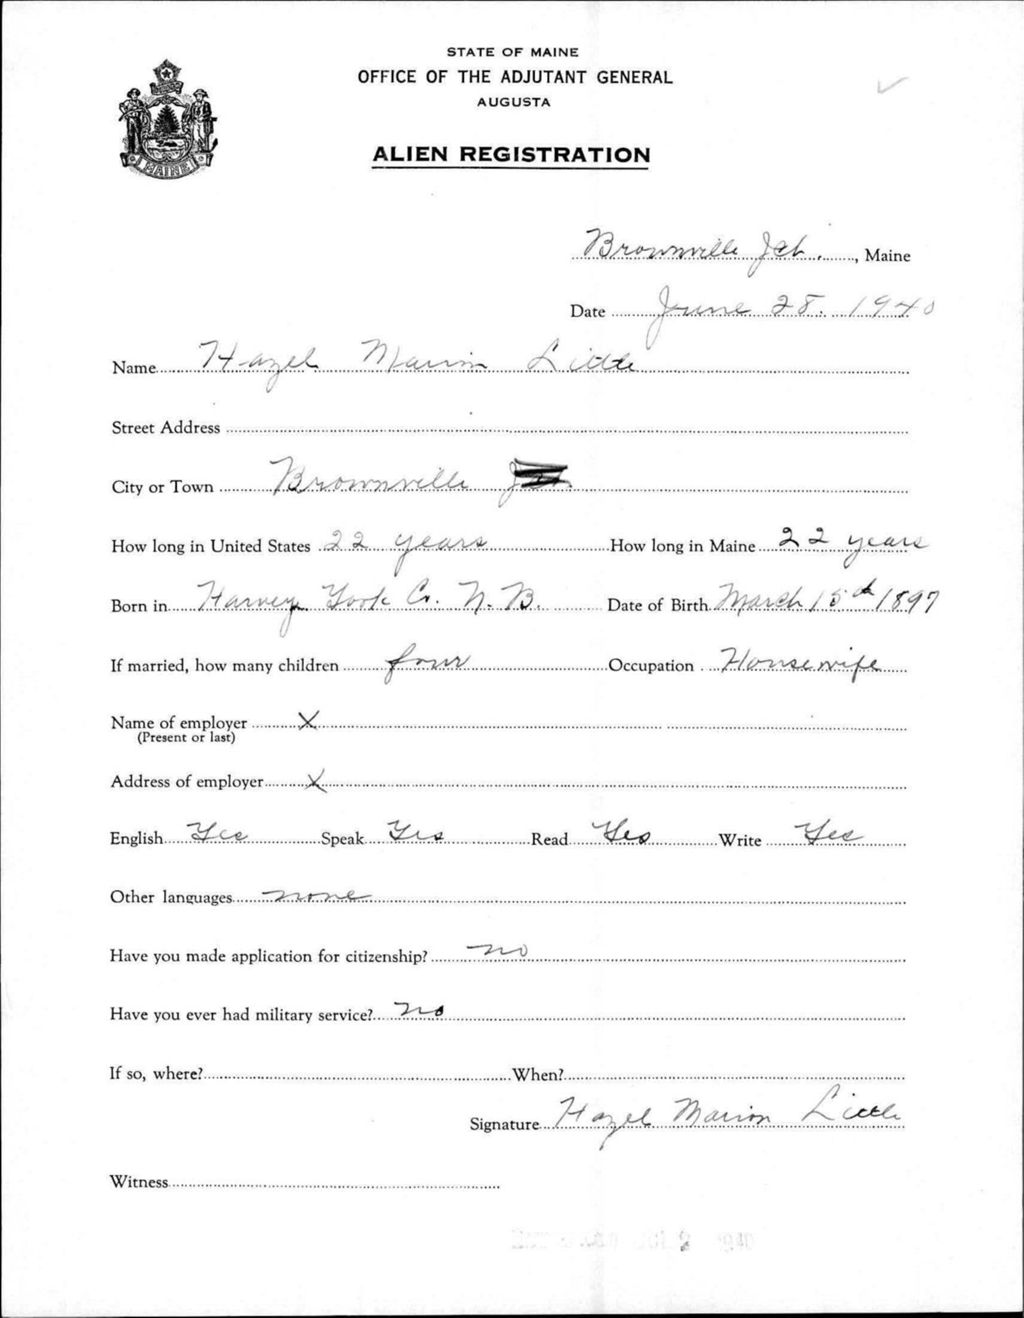 STATE OF MAINE
OFFICE OF THE ADJUTANT GENERAL
AUGUSTA
ALIEN REGISTRATION
MAINE
Brownville Jct. , Maine
Date June 28. 1940
Name Hazel Marion Little
Street Address
City or Town Brownville
How long in United States 22 years How long in Maine 22 years
Born in Harvey York Co. N. B. Date of Birth March 15th 1897
If married, how many children four Occupation Housewife
Name of employer X
(Present or last)
Address of employer X
English Yes Speak Yes Read Yes Write Yes
Other languages none
Have you made application for citizenship? no
Have you ever had military service? no
If so, where? When?
Signature Hazel Marion Little
Witness